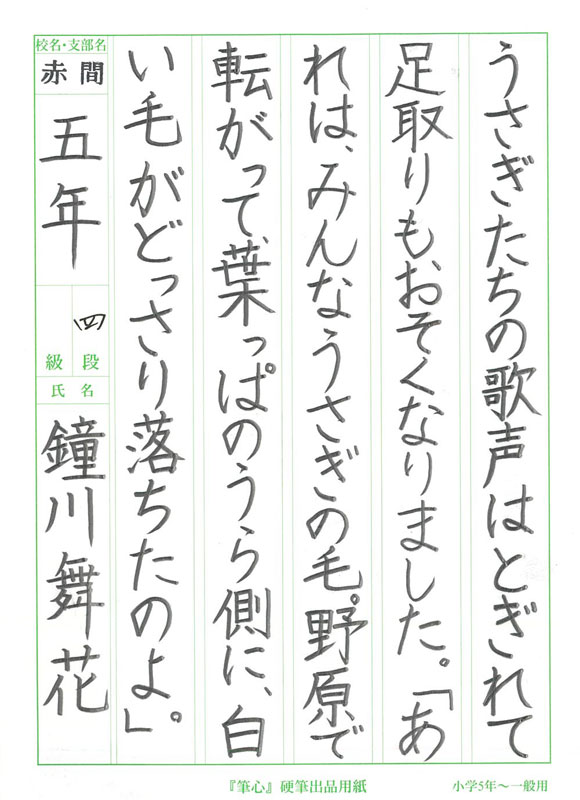 うさぎたちの歌声はとぎれて
足取りもおそくなりました。「あ
れは、みんなうさぎの毛。野原で
転がって、葉っぱのうら側に、白
い毛がどっさり落ちたのよ」。
校名・支部名
赤間
五年
四
級 段
氏名
鐘川舞花
『筆心』硬筆出品用紙
小学5年～一般用